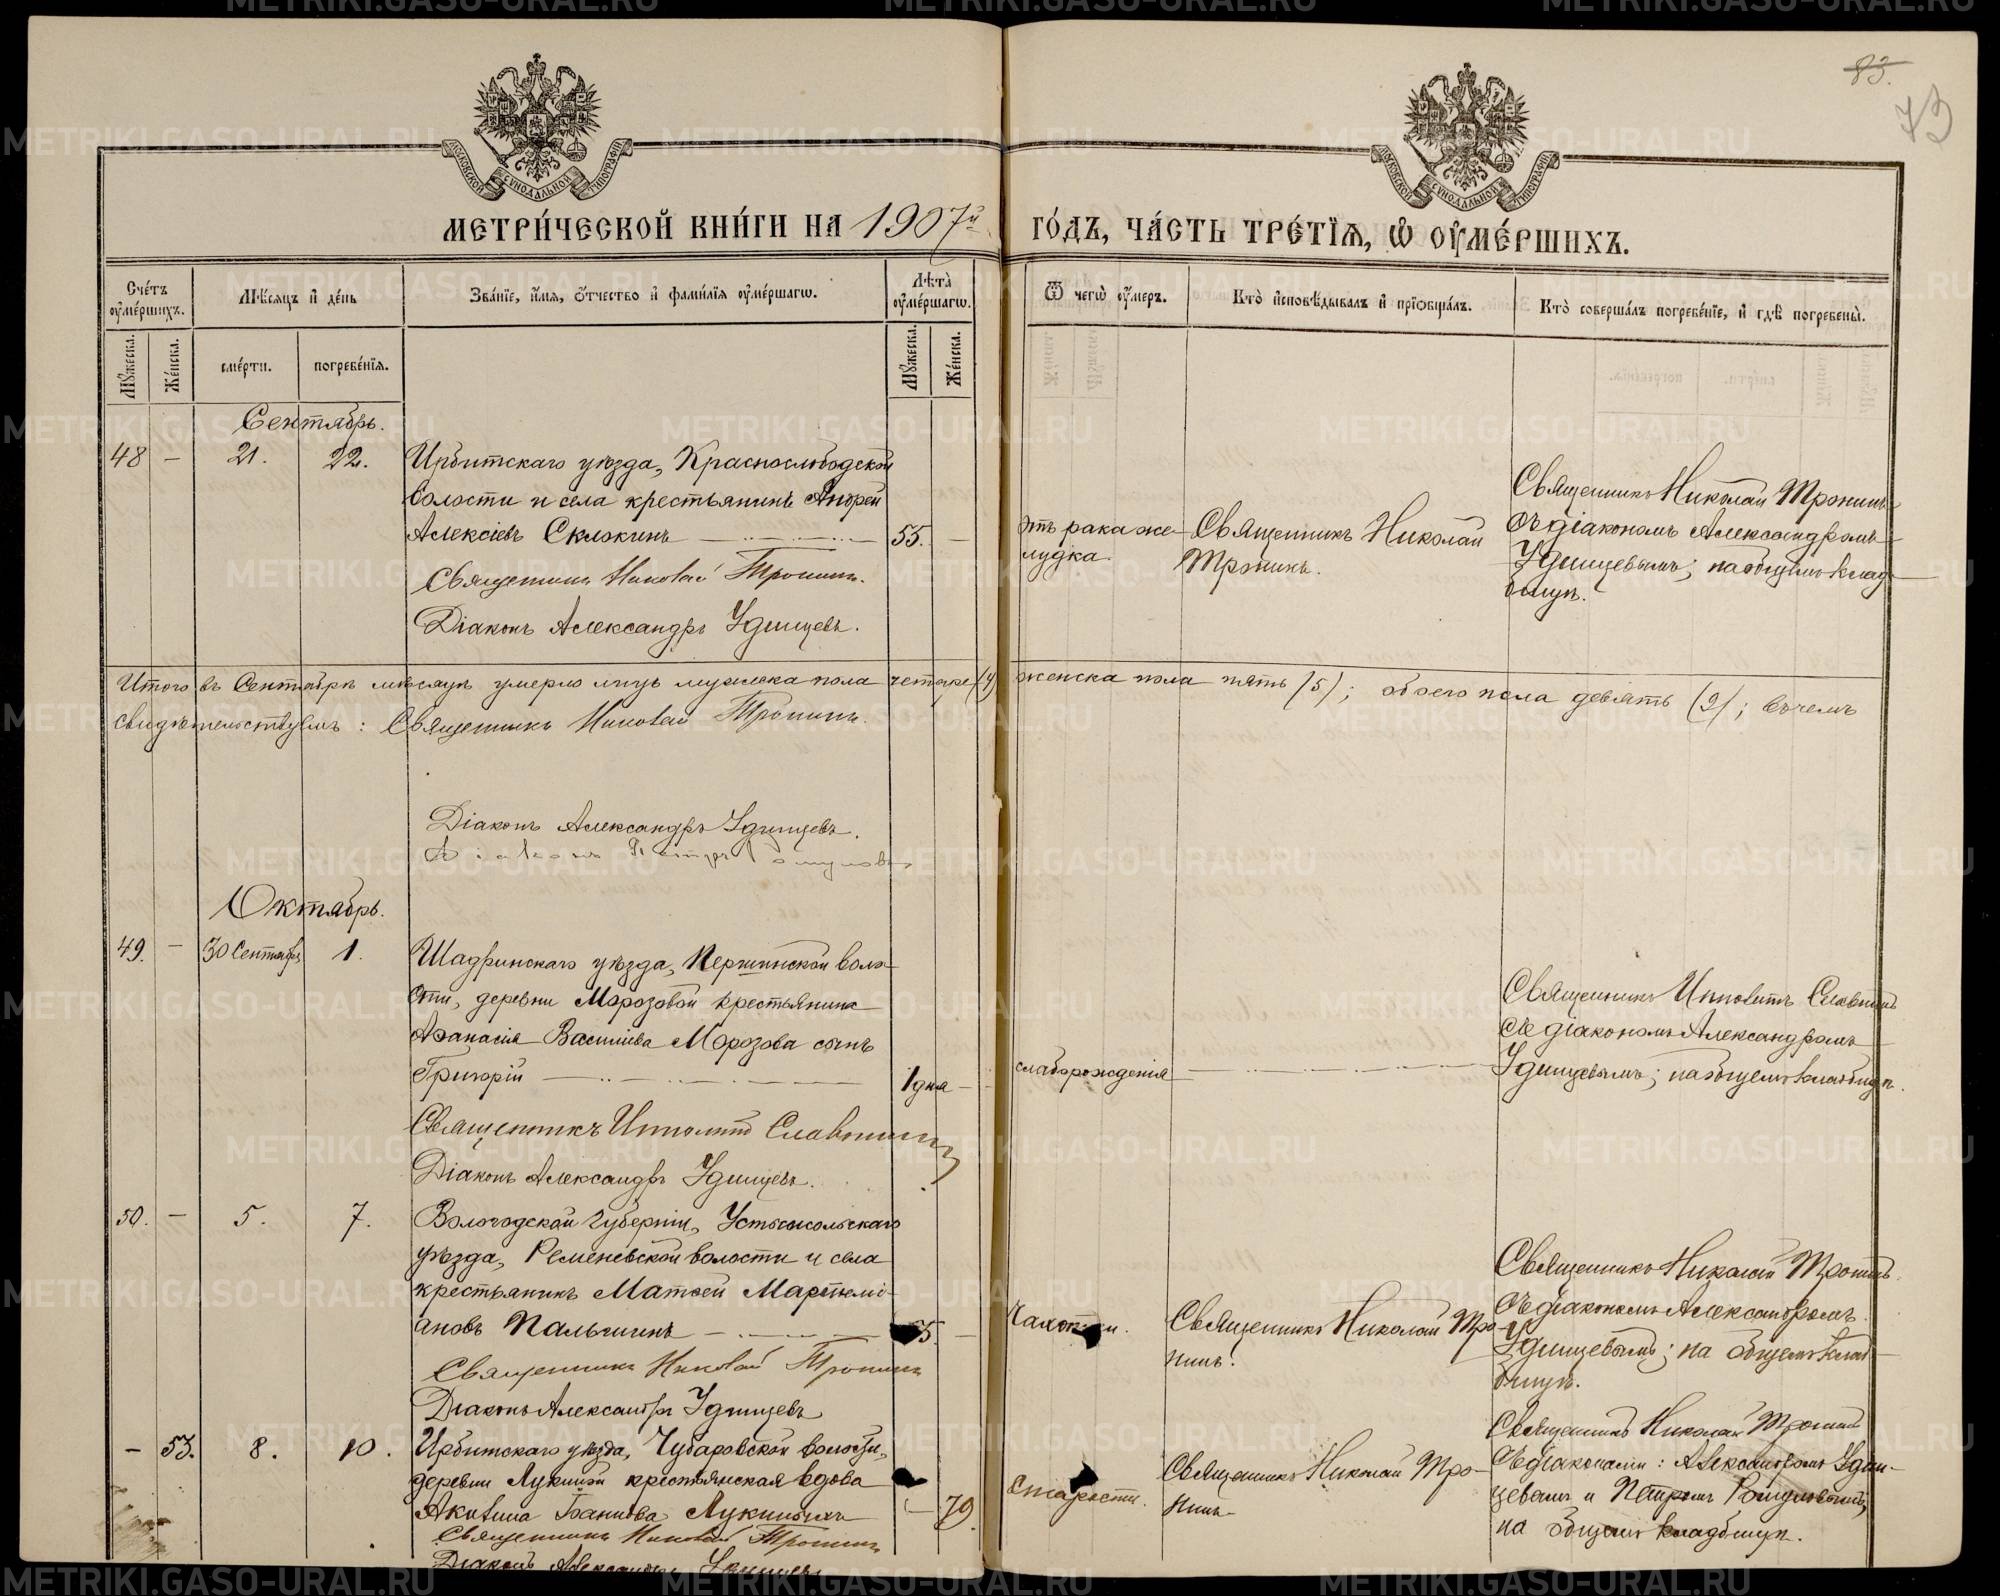 83.
73
МОСКОВСКОЙ СѴНОДАЛЬНОЙ ТИПОГРАФІИ
МОСКОВСКОЙ СѴНОДАЛЬНОЙ ТИПОГРАФІИ
МЕТРИ́ЧЕСКОЙ КНИ́ГИ НА 1907й
ГО́ДЪ, ЧА́СТЬ ТРЕ́ТІѦ, Ѡ ОУМЕ́РШИХЪ.
Сче́тъ оуме́ршихъ.
Мѣ́сѧцъ и де́нь
Зва́нїе, и́мѧ, ѻ́тчество и фами́лїѧ оуме́ршагѡ.
Лѣ́та оуме́ршагѡ.
Ѿ чегѡ̀ оу́меръ.
Кто̀ исповѣ́дывалъ и прїѡбща́лъ.
Кто̀ соверша́лъ погребе́нїе, и гдѣ̀ погребены̀.
Мꙋ́жеска.
Же́нска.
сме́рти.
погребе́нїѧ.
Мꙋ́жеска.
Же́нска.
Сентябрь.
48 – 21. 22.
Ирбитскаго уѣзда, Краснослободской
волости и села крестьянинъ Андрей
Алексіевъ Склюкинъ 55. –
Священникъ Николай Тронинъ.
Діаконъ Александръ Удинцевъ.
Отъ рака же-
лудка.
Священникъ Николай
Тронинъ.
Священникъ Николай Тронинъ
съ діакономъ Александромъ
Удинцевымъ; на общемъ клад-
бищѣ.
Итого въ Сентябрѣ мѣсяцѣ умерло лицъ мужеска пола четыре (4) женска пола пять (5); обоего пола девять (9); въ чемъ
свидѣтельствуемъ: Священникъ Николай Тронинъ.
Діаконъ Александръ Удинцевъ.
Діаконъ Петръ
Октябрь.
49. – 30 Сентября 1.
Шадринскаго уѣзда, Першинской воло-
сти, деревни Морозовой крестьянина
Аѳанасія Василіева Морозова сынъ
Григорій 1 дня –
Священникъ Ипполитъ Славнинъ
Діаконъ Александръ Удинцевъ.
слаборожденія
Священникъ Ипполитъ Славнинъ
съ діакономъ Александромъ
Удинцевымъ; на общемъ кладбищѣ.
50. – 5. 7.
Вологодской губерніи, Устьсысольскаго
уѣзда, Ременевской волости и села
крестьянинъ Матѳей Мартемі-
ановъ Пальшинъ
Священникъ Николай Тронинъ
Діаконъ Александръ Удинцевъ
Чахотки.
Священникъ Николай Тро-
нинъ.
Священникъ Николай Тронинъ
съ діакономъ Александромъ
Удинцевымъ; на общемъ клад-
бищѣ.
– 53. 8. 10.
Ирбитскаго уѣзда, Чубаровской волости,
деревни Лукиной крестьянская вдова
Акилина Иванова Лукиныхъ – 79.
Священникъ Николай Тронинъ
Діаконъ Александръ Удинцевъ
Старости.
Священникъ Николай Тро-
нинъ.
Священникъ Николай Тронинъ
съ діаконами: Александромъ Удин-
цевымъ и Петромъ
на общемъ кладбищѣ.
METRIKI.GASO-URAL.RU